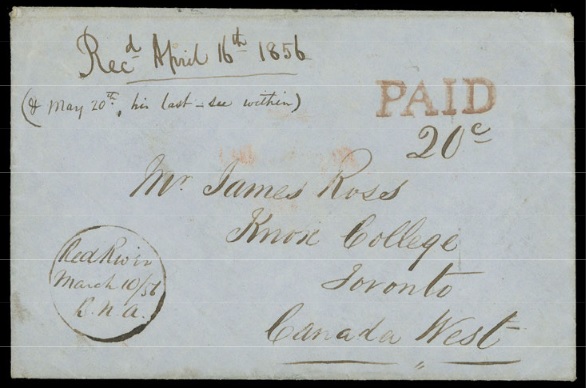 Rec^d April 16^th 1856
(& May 20^th, his last - see within)
PAID
20^c
Mr. James Ross
Knox College
Toronto
Canada West
Red River
March 10/56
B.N.A.